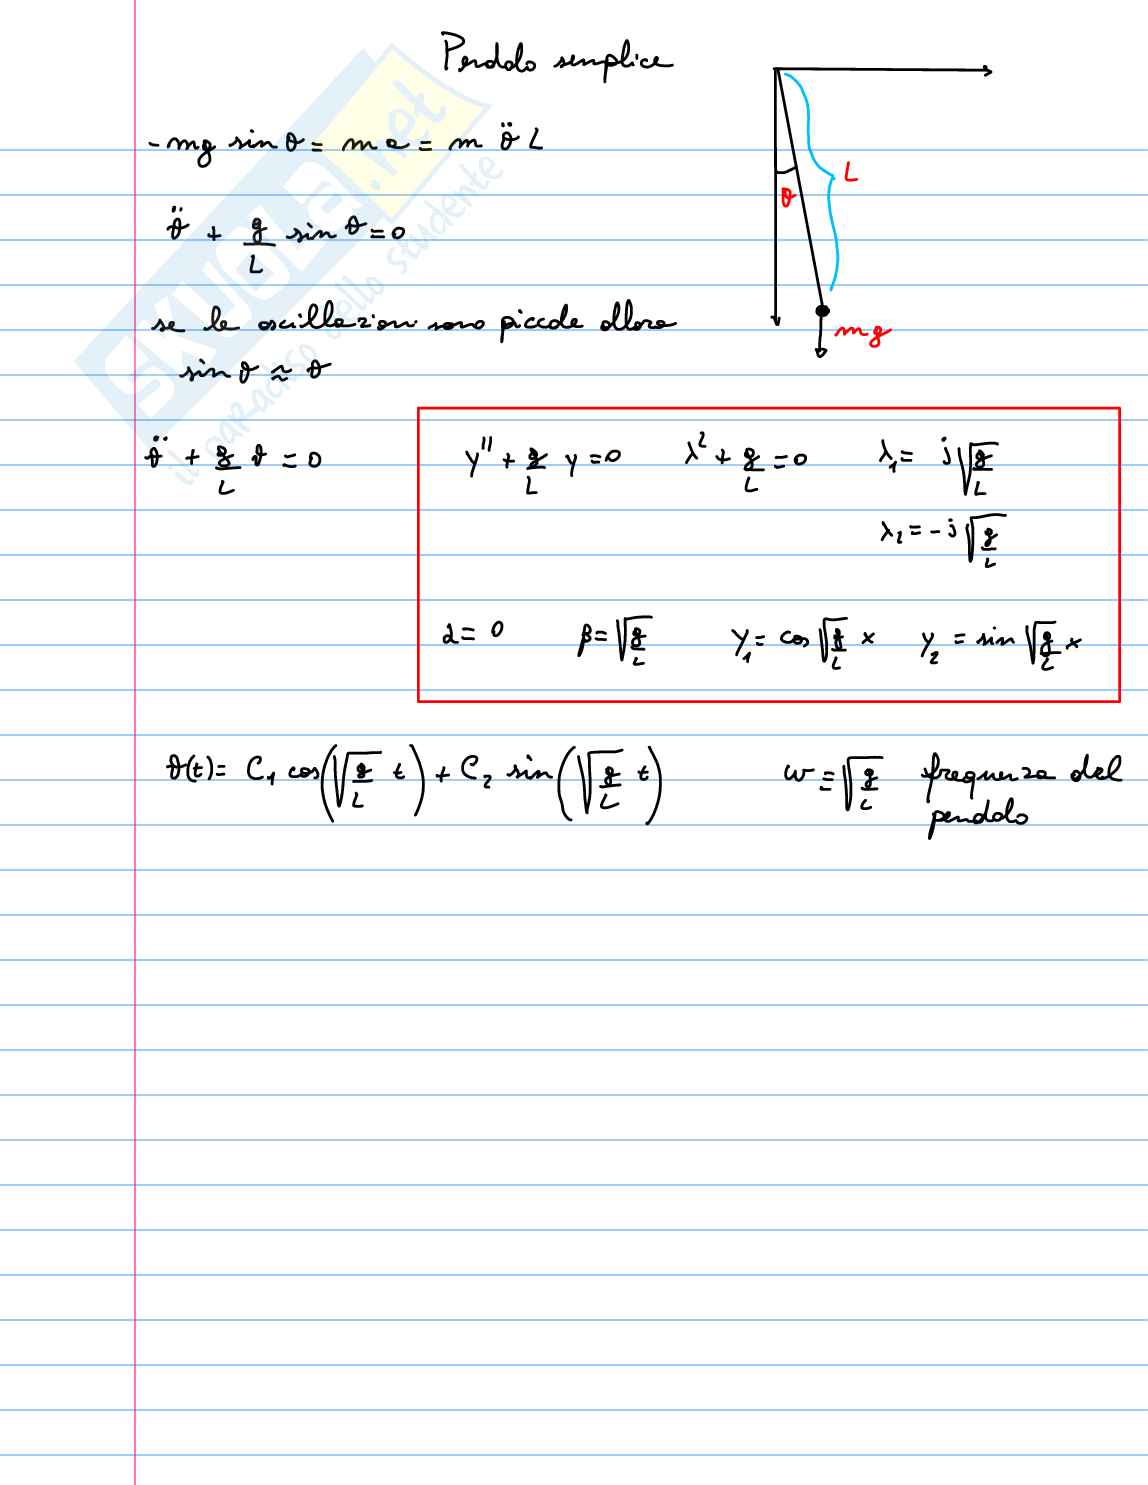 Pendolo semplice
- mg sin θ = m a = m θ̈ L
θ̈ + g/L sin θ = 0
se le oscillazioni sono piccole allora
sin θ ≈ θ
L
θ
mg
θ̈ + g/L θ = 0
y'' + g/L y = 0 λ² + g/L = 0 λ₁ = j√(g/L)
λ₂ = -j√(g/L)
α = 0 β = √(g/L) y₁ = cos √(g/L) x y₂ = sin √(g/L) x
θ(t) = C₁ cos(√(g/L) t) + C₂ sin(√(g/L) t) ω = √(g/L) frequenza del
pendolo
SKUOLA.net
il paradiso dello studente